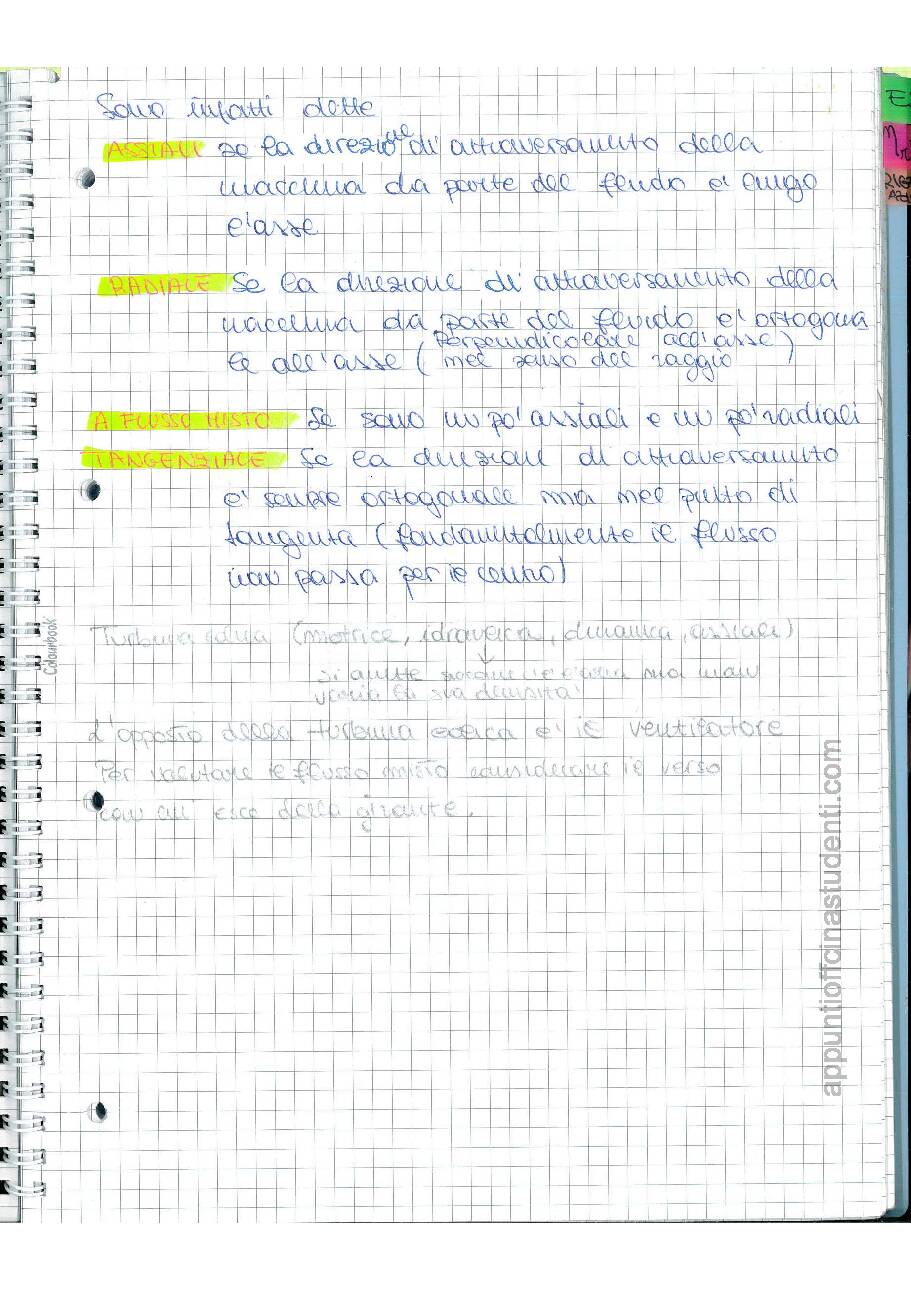 Sono infatti dette
ASSIALI se la direzione di attraversamento della
macchina da parte del fluido è lungo
l'asse
RADIALE Se la direzione di attraversamento della
macchina da parte del fluido è ortogona
le all'asse (perpendicolare all'asse)
nel senso del raggio
A FLUSSO MISTO Se sono un po' assiali e un po' radiali
TANGENZIALE Se la direzione di attraversamento
è sempre ortogonale ma nel punto di
tangenta (fondamentalmente il flusso
non passa per il centro)
Turbina eolica (motrice, idraulica, dinamica, assiale)
si ammette perché l'aria ma non
varia la sua densità
L'opposto della turbina eolica è il ventilatore
Per valutare il flusso misto considerare il verso
con cui esce dalla girante.
Colourbook
appuntiofficinastudenti.com